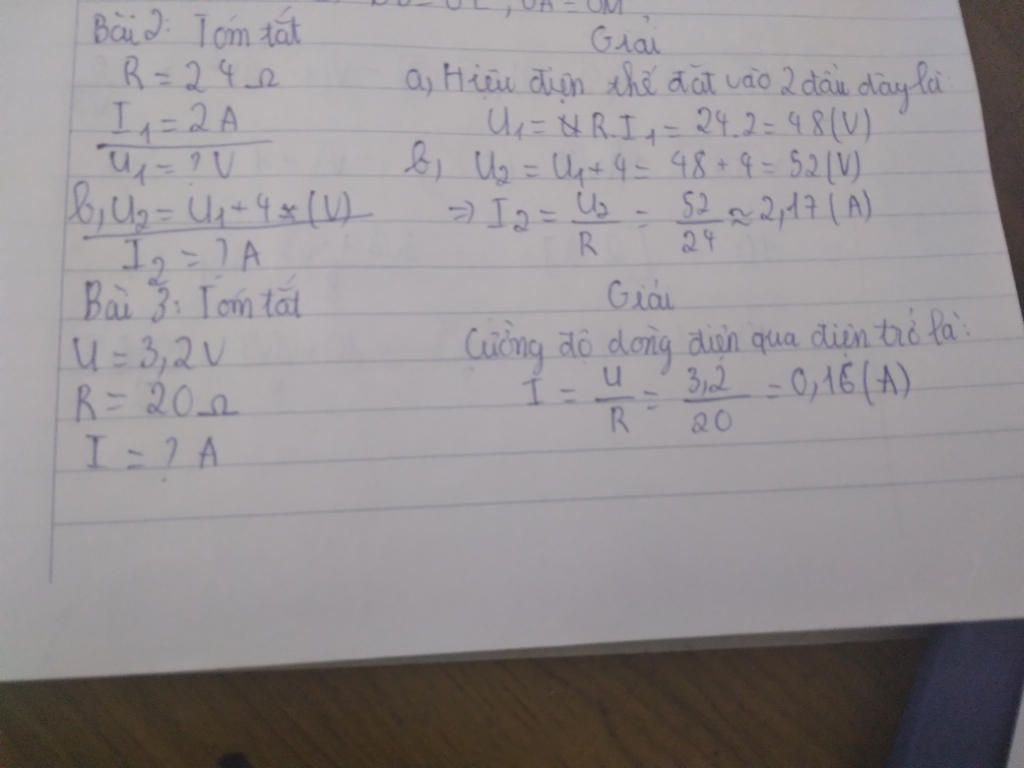 , OA = OM
Bài 2: Tóm tắt
R = 24 Ω
I₁ = 2 A
U₁ = ? V
b, U₂ = U₁ + 4 (V)
I₂ = ? A
Giải
a, Hiệu điện thế đặt vào 2 đầu dây là:
U₁ = R. I₁ = 24. 2 = 48 (V)
b, U₂ = U₁ + 4 = 48 + 4 = 52 (V)
=> I₂ = U₂/R = 52/24 ≈ 2,17 (A)
Bài 3: Tóm tắt
U = 3,2 V
R = 20 Ω
I = ? A
Giải
Cường độ dòng điện qua điện trở là:
I = U/R = 3,2/20 = 0,16 (A)